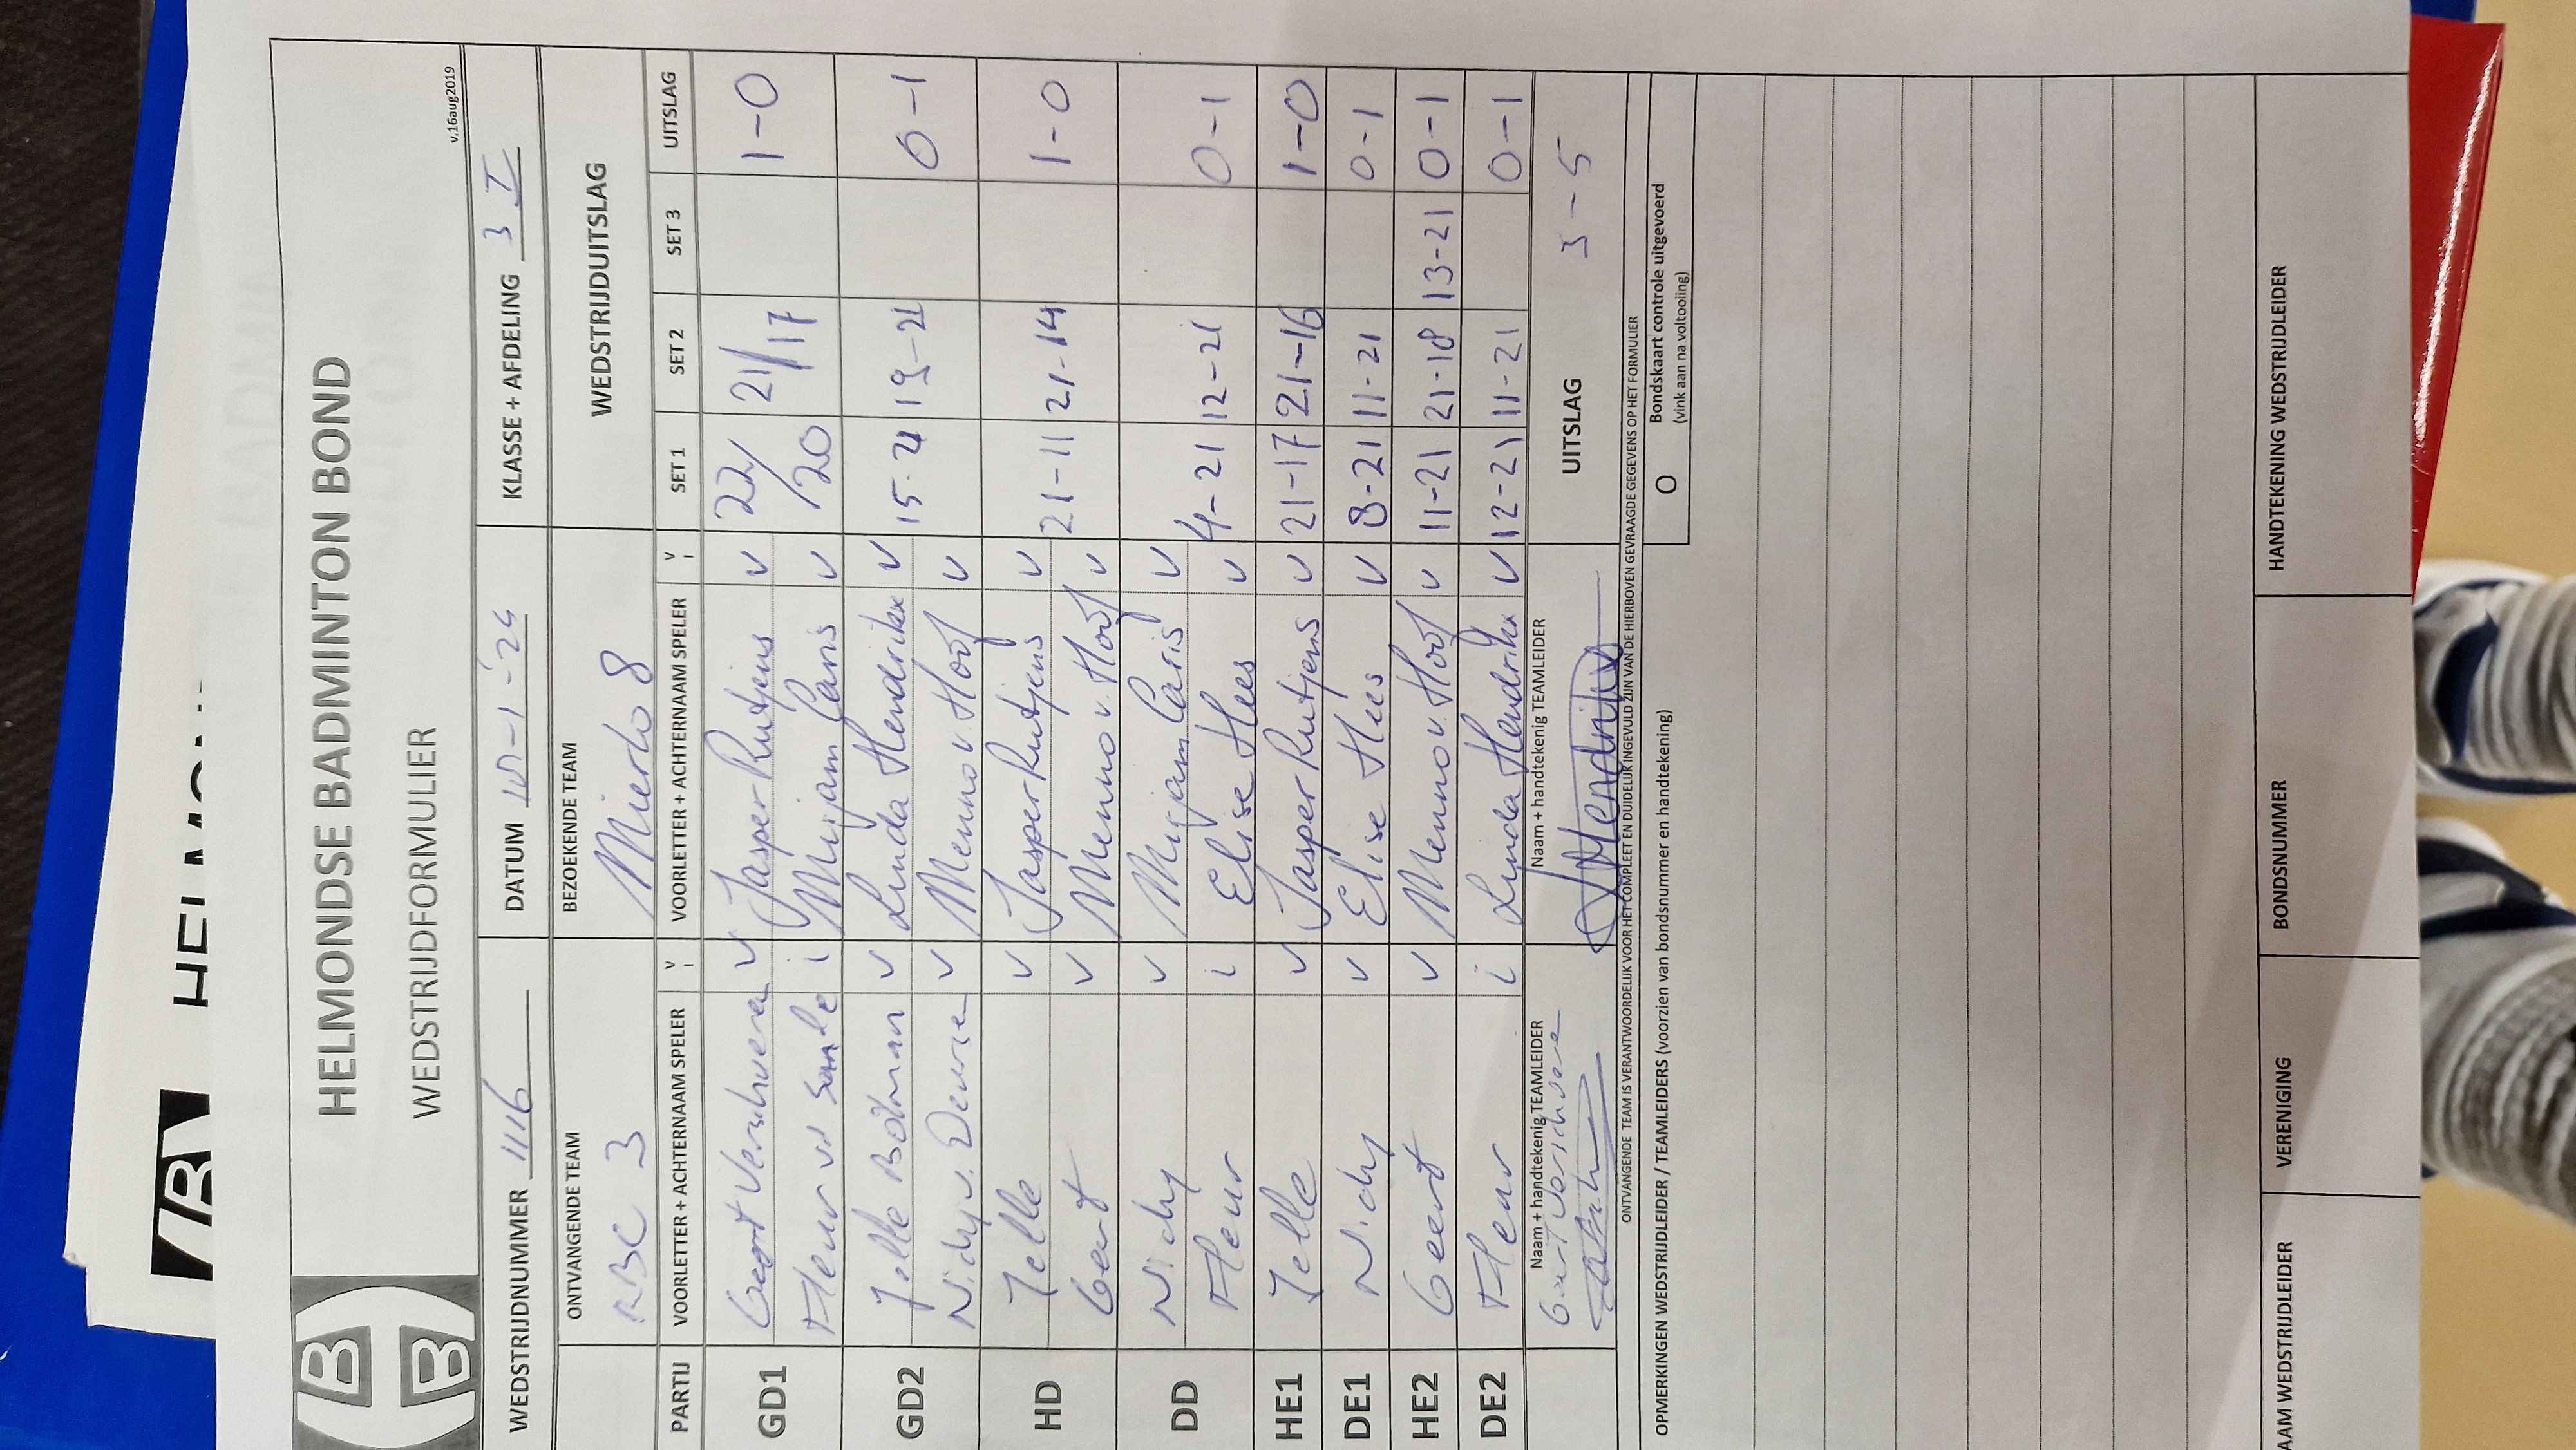 HELMONDSE BADMINTON BOND
WEDSTRIJDFORMULIER
v.16aug2019
WEDSTRIJDNUMMER 1116 DATUM KLASSE + AFDELING 3 I
ONTVANGENDE TEAM BEZOEKENDE TEAM WEDSTRIJDUITSLAG
RBC 3 Mierlo 8
PARTIJ VOORLETTER + ACHTERNAAM SPELER V I VOORLETTER + ACHTERNAAM SPELER V I SET 1 SET 2 SET 3 UITSLAG
GD1 Geert Verschueren v Jasper Rutjens v 22/20 21/17 1-0
Fleur vd i Mirjam Caris v
GD2 Jelle v Linda Hendrikx v 15-21 19-21 0-1
Nicky v. v Menno v. Hoof v
HD Jelle v Jasper Rutjens v 21-11 21-14 1-0
Geert v Menno v. Hoof v
DD Nicky v Mirjam Caris v 4-21 12-21 0-1
Fleur i Elise Hees v
HE1 Jelle v Jasper Rutjens v 21-17 21-16 1-0
DE1 Nicky v Elise Hees v 8-21 11-21 0-1
HE2 Geert v Menno v. Hoof v 11-21 21-18 13-21 0-1
DE2 Fleur i Lynda Hendrikx v 12-21 11-21 0-1
Naam + handtekenig TEAMLEIDER Naam + handtekenig TEAMLEIDER UITSLAG 3-5
Geert
ONTVANGENDE TEAM IS VERANTWOORDELIJK VOOR HET COMPLEET EN DUIDELIJK INGEVULD ZIJN VAN DE HIERBOVEN GEVRAAGDE GEGEVENS OP HET FORMULIER
OPMERKINGEN WEDSTRIJDLEIDER / TEAMLEIDERS (voorzien van bondsnummer en handtekening) O Bondskaart controle uitgevoerd
(vink aan na voltooiing)
AAM WEDSTRIJDLEIDER VERENIGING BONDSNUMMER HANDTEKENING WEDSTRIJDLEIDER